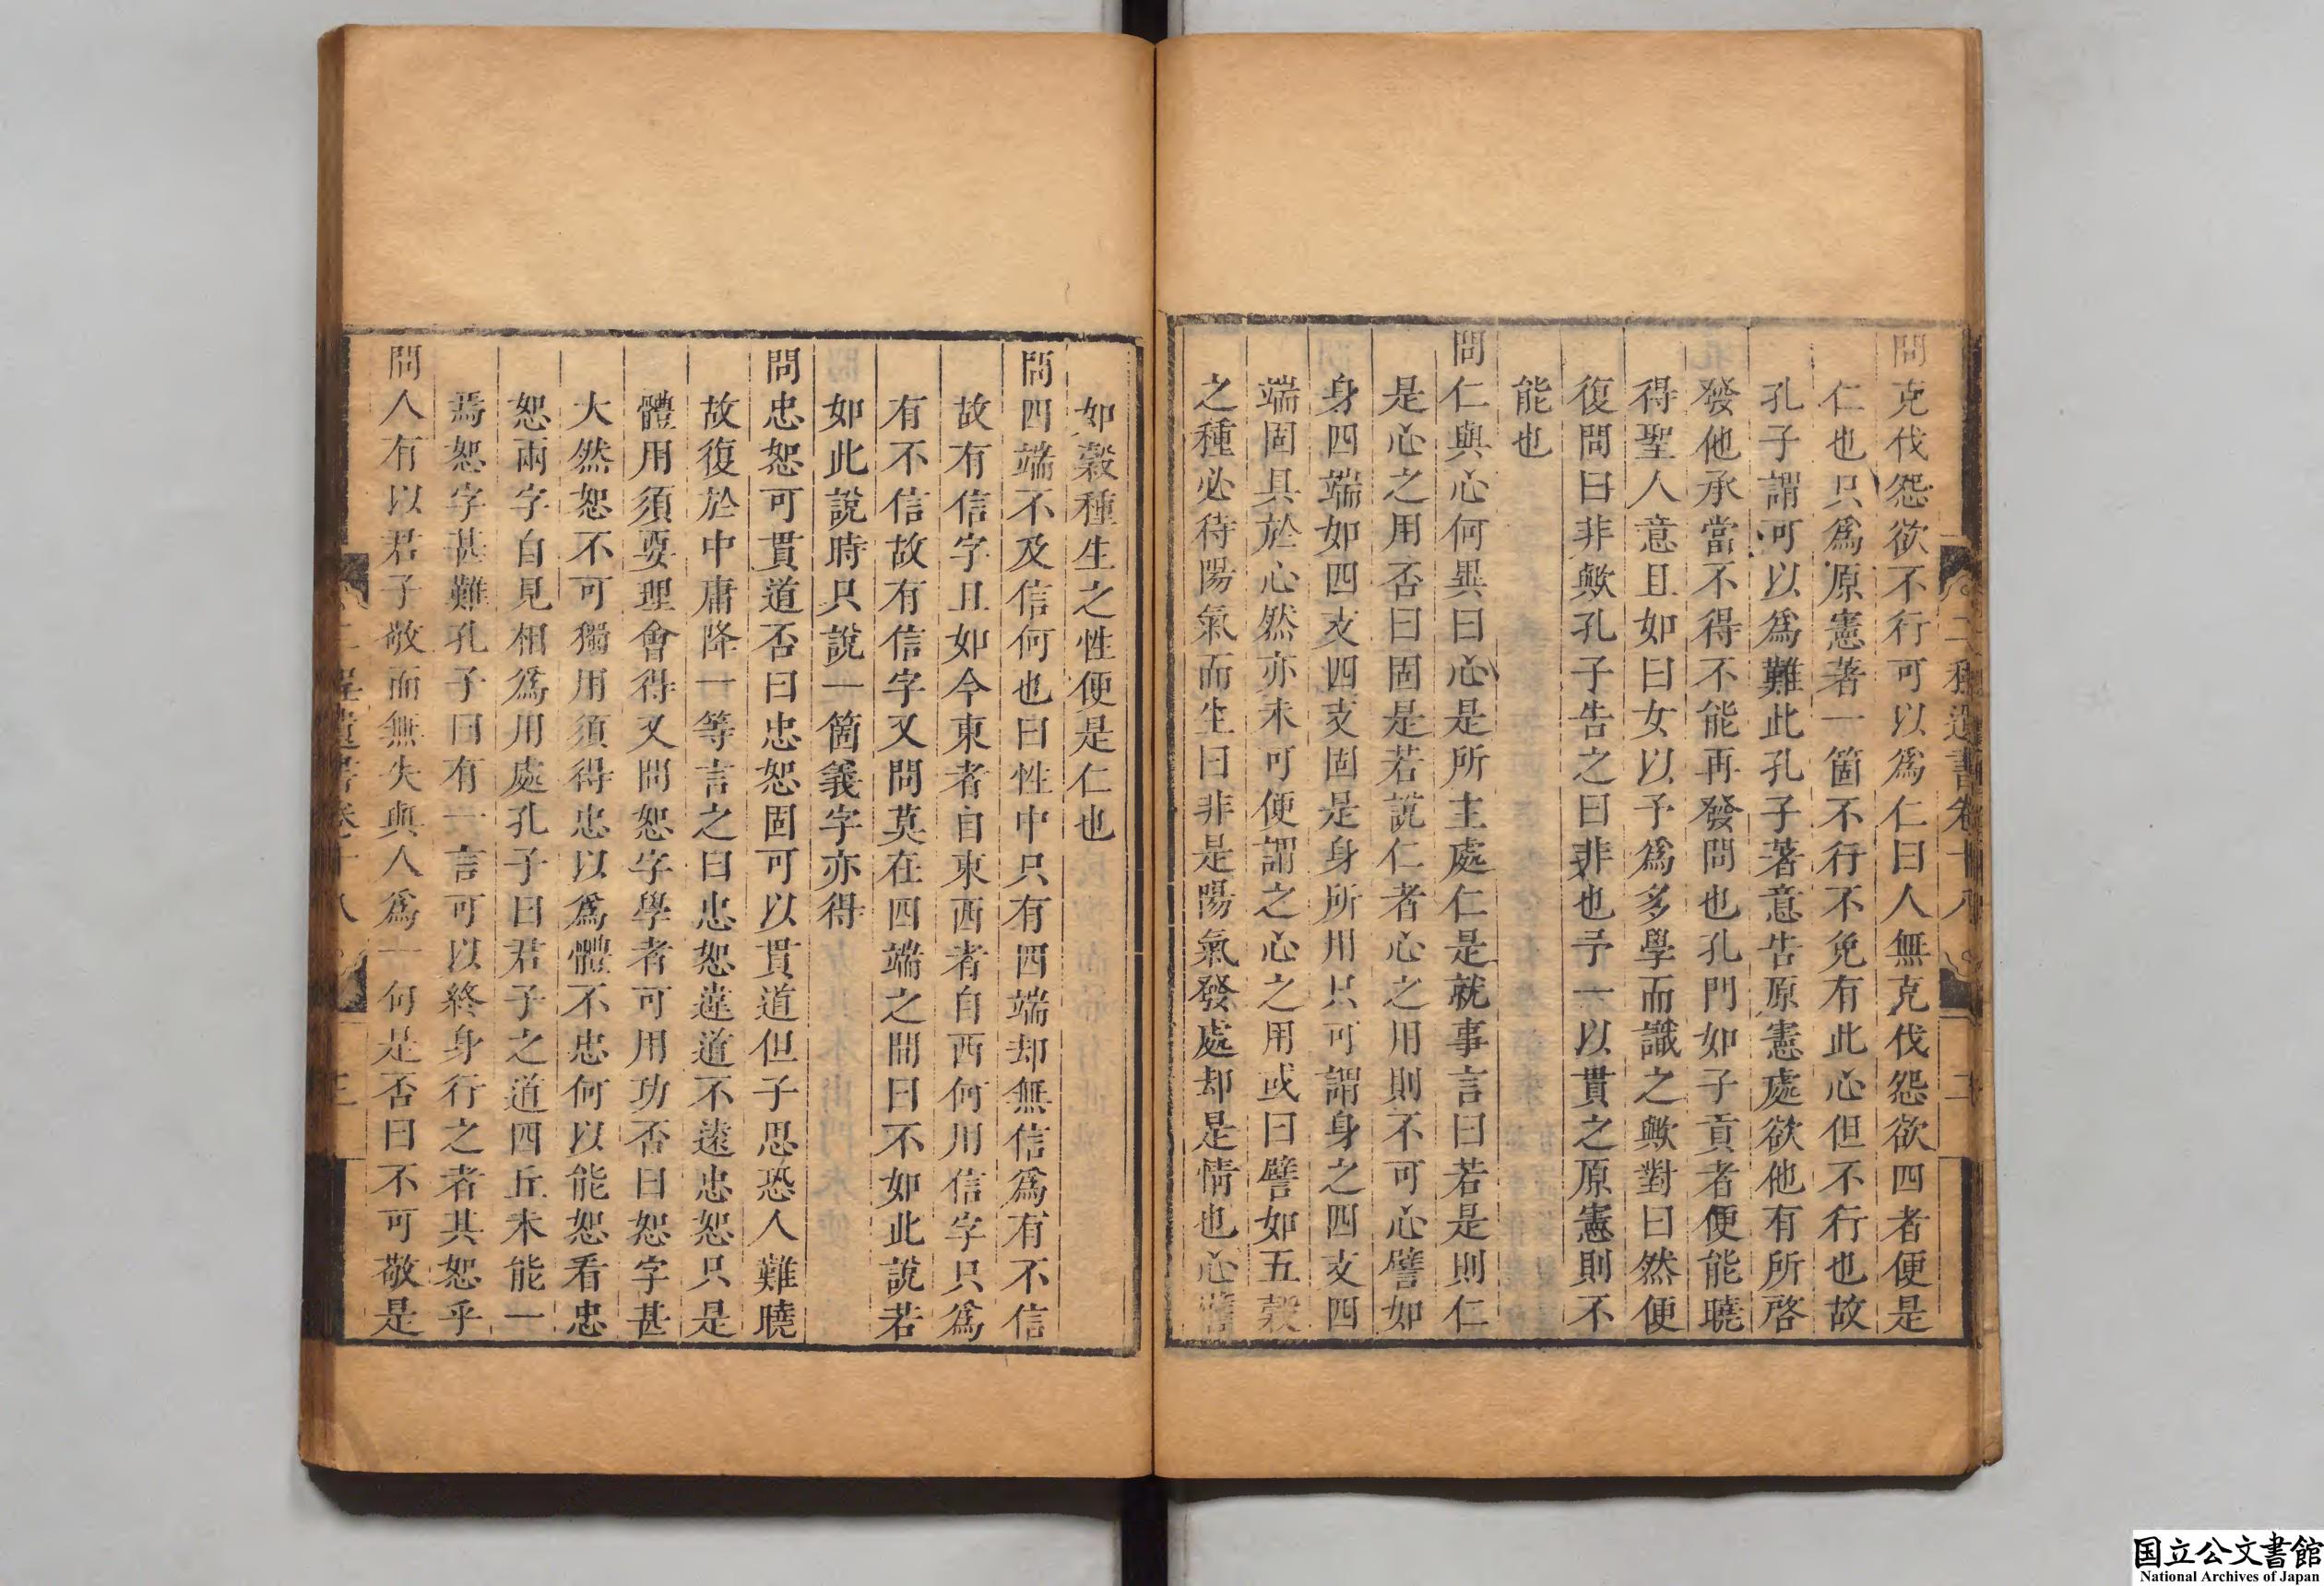 問克伐怨欲不行可以爲仁曰人無克伐怨欲四者便是
仁也只爲原憲著一箇不行不免有此心但不行也故
孔子謂可以爲難此孔子著意告原憲處欲他有所啓
發他承當不得不能再發問也孔門如子貢者便能曉
得聖人意且如曰女以予爲多學而識之歟對曰然便
復問曰非歟孔子告之曰非也予一以貫之原憲則不
能也
問仁與心何異曰心是所主處仁是就事言曰若是則仁
是心之用否曰固是若說仁者心之用則不可心譬如
身四端如四支四支固是身所用只可謂身之四支四
端固具於心然亦未可便謂之心之用或曰譬如五穀
之種必待陽氣而生曰非是陽氣發處却是情也心譬
二程遺書卷十八
二
如穀種生之性便是仁也
問四端不及信何也曰性中只有四端却無信爲有不信
故有信字且如今東者自東西者自西何用信字只爲
有不信故有信字又問莫在四端之間曰不如此說若
如此說時只說一箇義字亦得
問忠恕可貫道否曰忠恕固可以貫道但子思恐人難曉
故復於中庸降一等言之曰忠恕違道不遠忠恕只是
體用須要理會得又問恕字學者可用功否曰恕字甚
大然恕不可獨用須得忠以爲體不忠何以能恕看忠
恕兩字自見相爲用處孔子曰君子之道四丘未能一
焉恕字甚難孔子曰有一言可以終身行之者其恕乎
問人有以君子敬而無失與人爲一何是否曰不可敬是
二程遺書卷十八
三
国立公文書館
National Archives of Japan